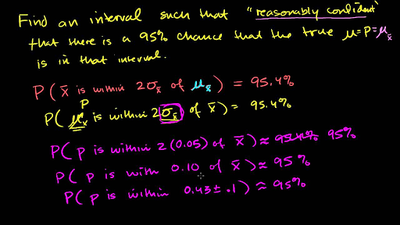 Find an interval such that "reasonably confident"
that there is a 95% chance that the true μ=P=μx̄
is in that interval.
P( x̄ is within 2σx̄ of μx̄ ) = 95.4%
P
P( μx̄ is within 2σx̄ of x̄ ) = 95.4%
P( p is within 2(0.05) of x̄ ) ≈ 95.4% 95%
P( p is with 0.10 of x̄ ) ≈ 95%
P( p is within 0.43 ± .1 ) ≈ 95%